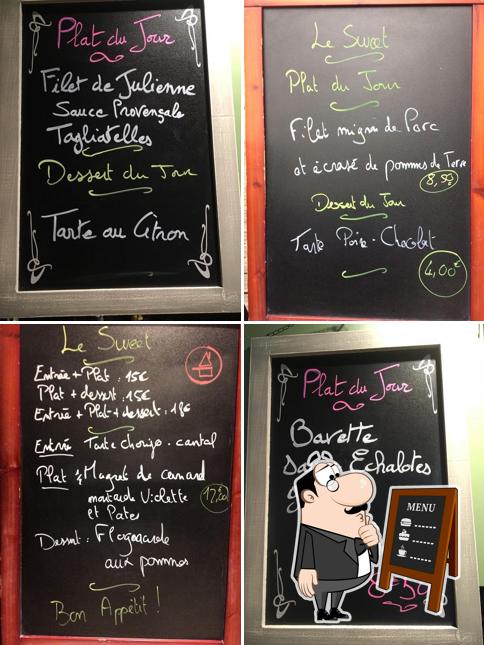 Plat du Jour
Filet de Julienne
Sauce Provençale
Tagliatelles
Dessert du Jour
Tarte au Citron
Le Sweet
Plat du Jour
Filet mignon de Porc
et écrasé de pommes de Terre
8,50€
Dessert du Jour
Tarte Poire - Chocolat
4,00€
Le Sweet
Entrée + Plat : 15€
Plat + dessert : 15€
Entrée + Plat + dessert : 18€
Entrée Tarte chorizo - cantal
Plat : Magret de canard
moutarde Violette
12,00
et Pates
Dessert :
aux pommes
Bon Appétit !
Plat du Jour
Bavette
Echalotes
MENU